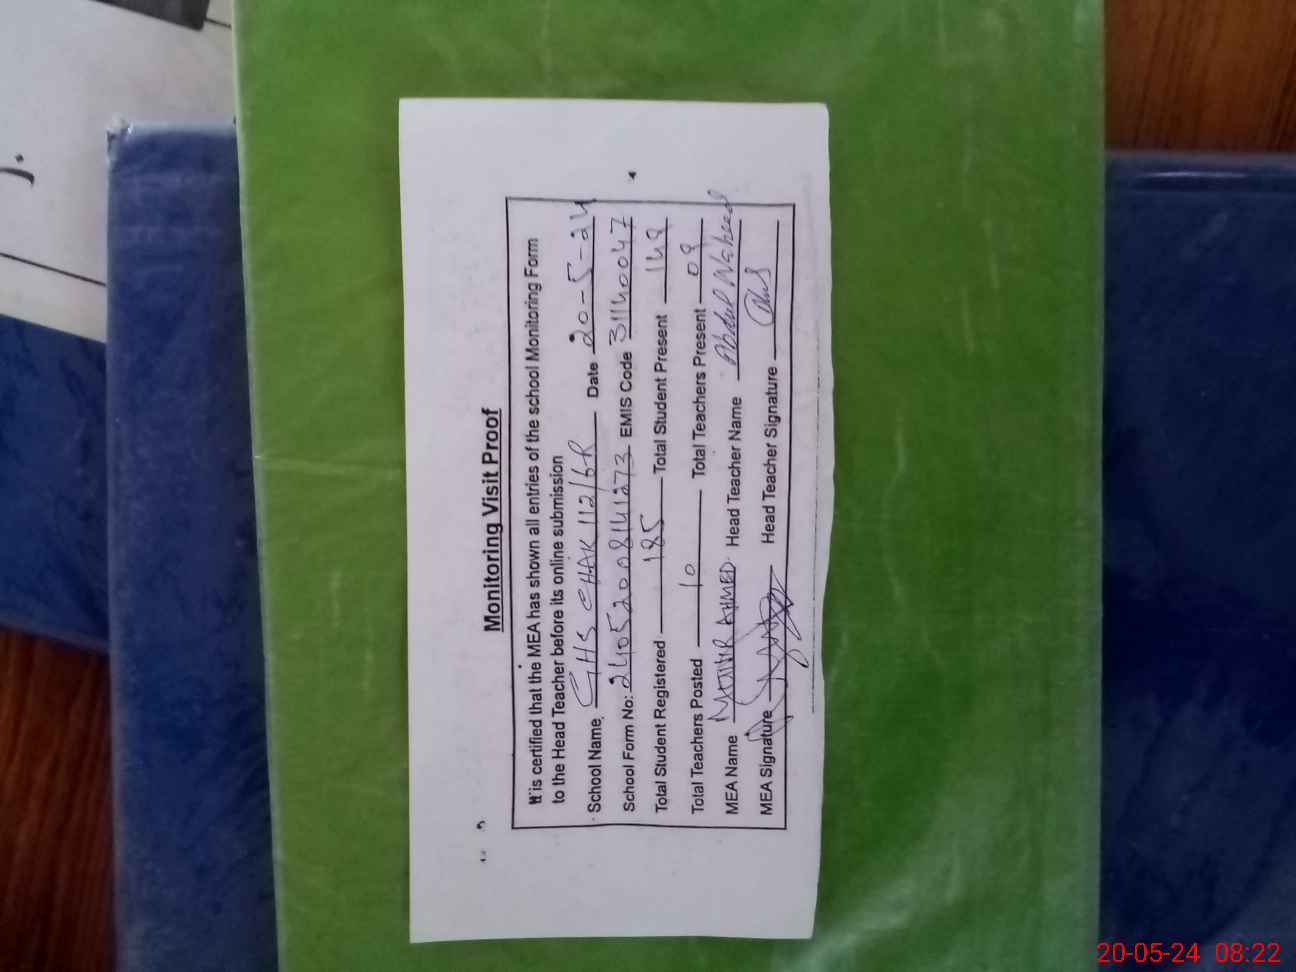 Monitoring Visit Proof
It is certified that the MEA has shown all entries of the school Monitoring Form
to the Head Teacher before its online submission
School Name GHS CHAK 112/6R Date 20-5-24
School Form No: 24052008141273 EMIS Code 31140047
Total Student Registered 185 Total Student Present 149
Total Teachers Posted 10 Total Teachers Present 09
MEA Name AHMED Head Teacher Name Abdul Waheed
MEA Signature Head Teacher Signature
20-05-24 08:22